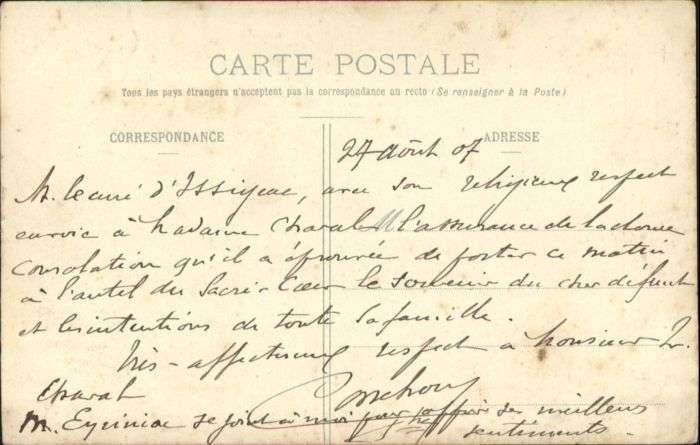 CARTE POSTALE
Tous les pays étrangers n'acceptent pas la correspondance au recto (Se renseigner à la Poste)
CORRESPONDANCE
ADRESSE
27 Août 07
M. le curé d'Issigeac, avec son religieux respect
envoie à Madame l'assurance de la douce
Consolation qu'il a éprouvée de porter ce matin
à l'autel du Sacré-Cœur le souvenir du cher défunt
et les intentions de toute sa famille.
Très-affectueux respect à Monsieur
M. se joint à moi pour offrir ses meilleurs
sentiments.